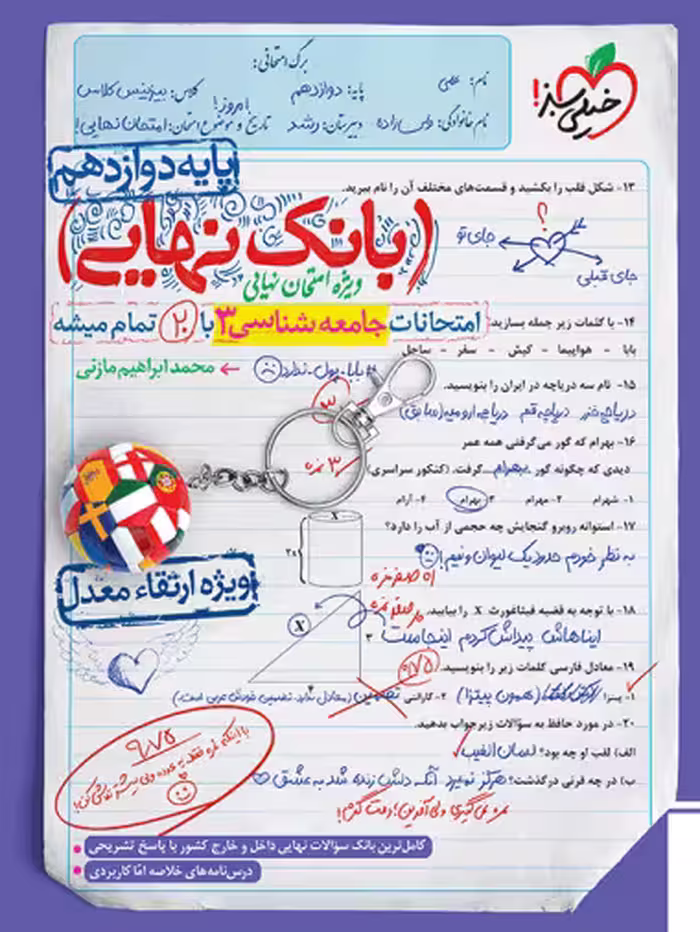 برگ امتحانی:
نام: علی
پایه: دوازدهم
کلاس: بیزینس کلاس
نام خانوادگی: ولی زاده
دبیرستان: رشد
تاریخ و موضوع امتحان: امروز! امتحان نهایی!
خیلی سبز!
پایه دوازدهم
۱۳- شکل قلب را بکشید و قسمت‌های مختلف آن را نام ببرید.
(بانک نهایی)
؟
جای تو
جای قبلی
ویژه امتحان نهایی
۱۴- با کلمات زیر جمله بسازید:
امتحانات جامعه شناسی ۳ با ۲۰ تمام میشه
بابا - هواپیما - کیش - سفر - ساحل
بابا - پول - ندارد
محمد ابراهیم مازنی
۱۵- نام سه دریاچه در ایران را بنویسید.
۳
دریاچه خزر دریاچه قم دریاچه ارومیه (سابق)
۱۶- بهرام که گور می‌گرفتی همه عمر
دیدی که چگونه گور بهرام گرفت. (کنکور سراسری)
۳ نمره
۱- شهرام ۲- مهرام ۳- بهرام ۴- آرام
۱۷- استوانه روبرو گنجایش چه حجمی از آب را دارد؟
x
۲x
به نظر خودم حدود یک لیوان و نیم!
صفر نمره
ویژه ارتقاء معدل
۱۸- با توجه به قضیه فیثاغورث X را بیابید.
صفر نمره
X
۳
ایناهاش پیداش کردم اینجاست
۱۹- معادل فارسی کلمات زیر را بنویسید.
۰/۷۵
۱- پیتزا (همون پیتزا) ۲- گارانتی تضمین (معادل ندارد. تضمین خودش عربی است.)
۲۰- در مورد حافظ به سؤالات زیر جواب بدهید.
الف) لقب او چه بود؟ لسان الغیب
ب) در چه قرنی درگذشت؟ هرگز نمیرد آنکه دلش زنده شد به عشق
۹/۷۵
نمره نمی‌گیری ولی آفرین!
کامل‌ترین بانک سؤالات نهایی داخل و خارج کشور با پاسخ تشریحی
درس‌نامه‌های خلاصه امّا کاربردی